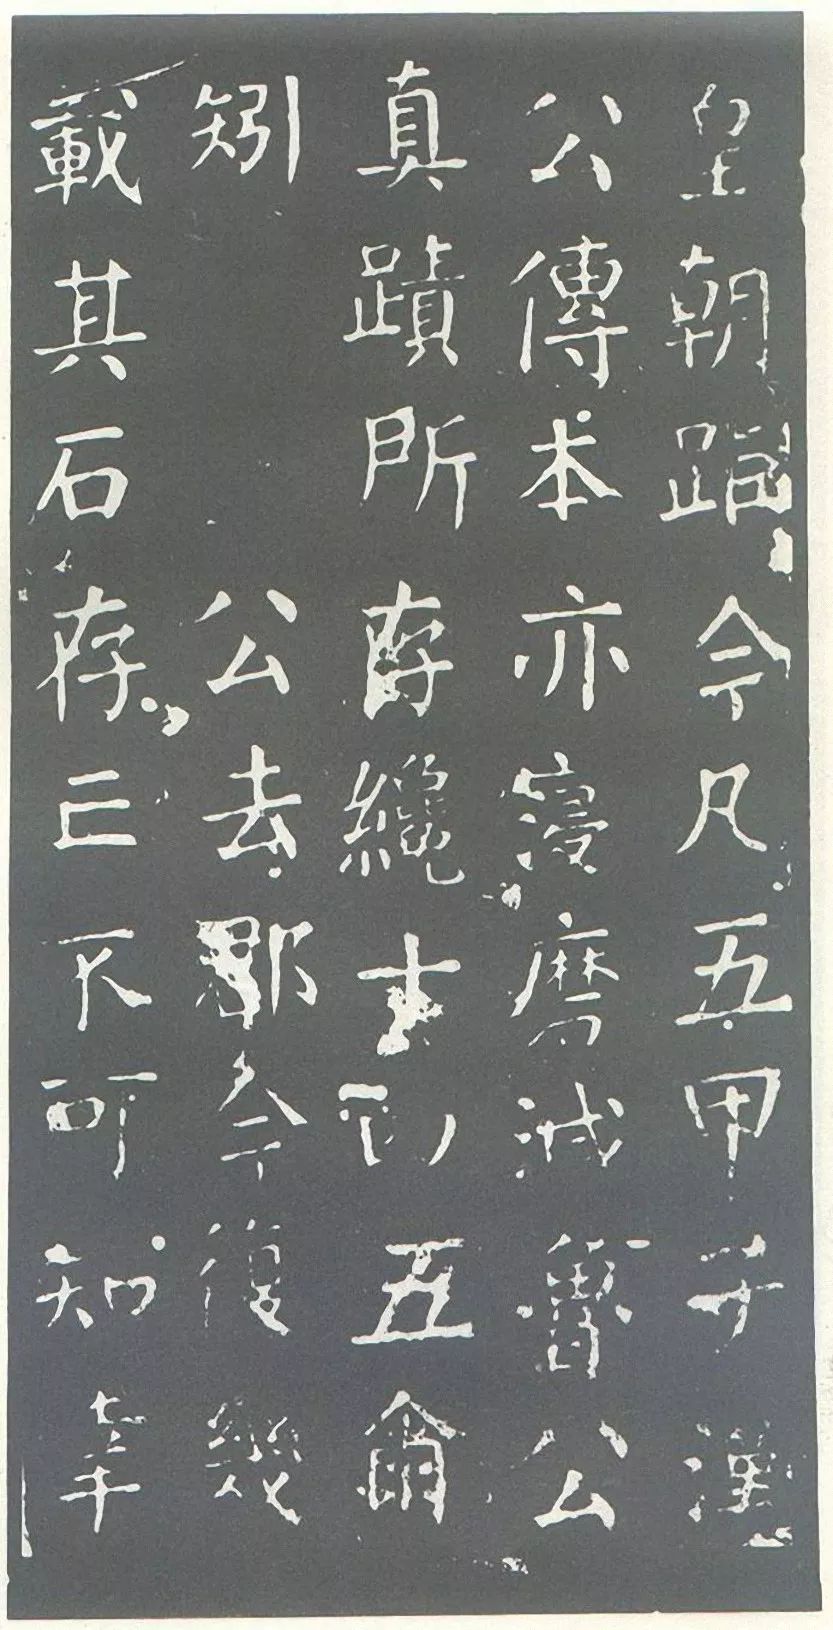 皇朝距今凡五甲子漢
公傳本亦寖磨滅魯公
真蹟所存纔五爾
矧　公去郡今復幾
載其石存亡不可知幸